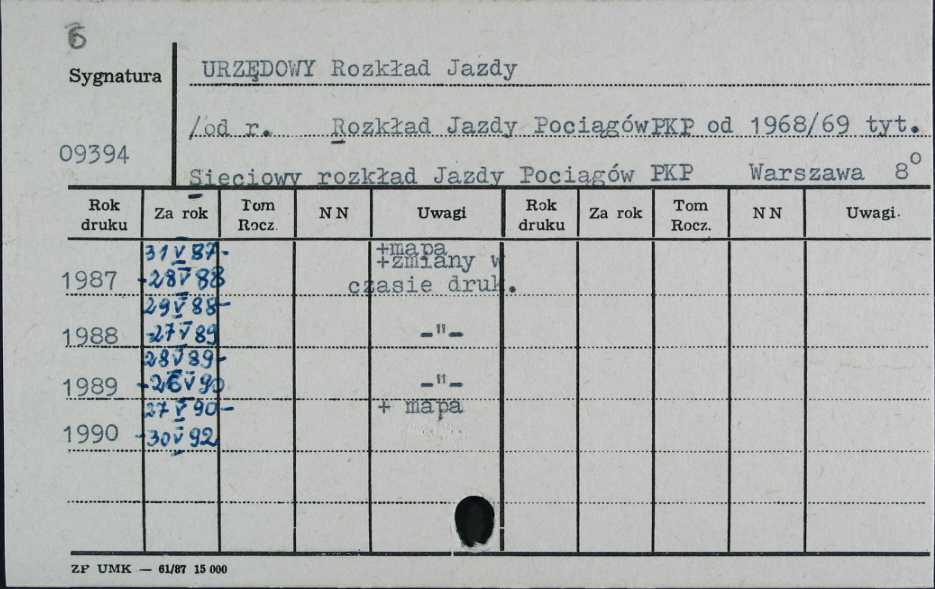 6
Sygnatura
URZĘDOWY Rozkład Jazdy
/od r. Rozkład Jazdy PociągówPKP od 1968/69 tyt.
09394
Sieciowy rozkład Jazdy Pociągów PKP Warszawa 8°
Rok druku Za rok Tom Rocz. NN Uwagi Rok druku Za rok Tom Rocz. NN Uwagi.
31 V 87- +mapa
+zmiany w
1987 -28 V 88 czasie druk.
29 V 88-
1988 -27 V 89 -"-
28 V 89-
1989 -26 V 90 -"-
27 V 90- + mapa
1990 -30 V 92
ZP UMK — 61/87 15 000